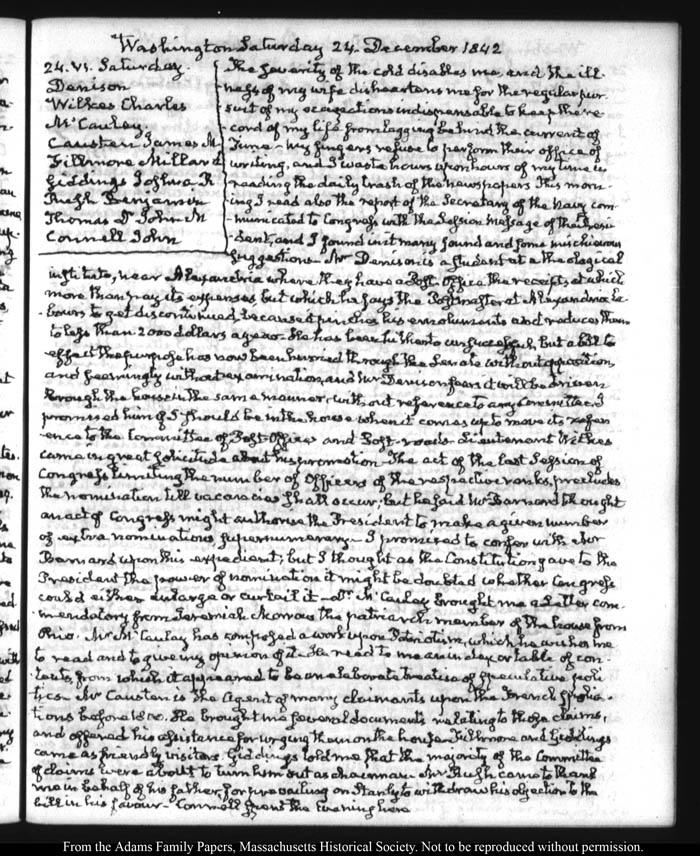 Washington Saturday 24. December 1842
24. VI. Saturday.
Denison
Wilkes Charles
McCauley.
Causten James M
Fillmore Millard
Giddings Joshua R
Pugh Benjamin
Thomas D. John M
Connell John
The severity of the cold disables me, and the ill-
ness of my wife disheartens me for the regular pur-
suit of my occupations indispensable to keep the re-
cord of my life from lagging behind the current of
Time - My fingers refuse to perform their office of
writing, and I waste hours upon hours of my time in
reading the daily trash of the newspapers This morn-
ing I read also the report of the Secretary of the Navy com-
municated to Congress with the Session Message of the Presi-
dent, and I found in it many sound and some mischievous
suggestions - Mr Denison is a student at a theological
institute, near Alexandria where they have a Post-Office the receipts of which
more than pay its expenses but which he says the Postmaster at Alexandria la-
bours to get discontinued, because it pinches his emoluments and reduces them
to less than 2000 dollars a year. He has been hitherto unsuccessful, but a bill to
effect the purpose has now been hurried through the Senate without opposition,
and seemingly without examination, and Mr Denison fears it will be driven
through the house in the same manner, without reference to any Committee. I
promised him if I should be in the house when it comes up to move its refer-
ence to the Committee of Post-Offices and Post-roads. Lieutenant Wilkes
came in great solicitude about his promotion - The act of the last Session of
Congress limiting the number of Officers of the respective ranks, precludes
the nomination till vacancies shall occur; but he said Mr Barnard thought
an act of Congress might authorise the President to make a given number
of extra nominations supernumerary - I promised to confer with Mr
Barnard upon this expedient; but I thought as the Constitution gave to the
President the power of nomination it might be doubted whether Congress
could either enlarge or curtail it - Mr McCauley brought me a Letter com-
mendatory from Jeremiah Morrow the patriarch member of the house from
Ohio. Mr McCauley has composed a work upon Patriotism, which he wishes me
to read and to give my opinion of it. He read to me an index or table of con-
tents, from which it appeared to be an elaborate treatise of speculative poli-
tics - Mr Causten is the Agent of many claimants upon the French spolia-
tions before 1800. He brought me several documents relating to those claims,
and offered his assistance for urging them on the house. Fillmore and Giddings
came as friendly visitors. Giddings told me that the majority of the Committee
of claims were about to turn him out as chairman - Mr Pugh came to thank
me in behalf of his father, for prevailing on Stanly to withdraw his objection to the
bill in his favour - Connell spent the Evening here
From the Adams Family Papers, Massachusetts Historical Society. Not to be reproduced without permission.